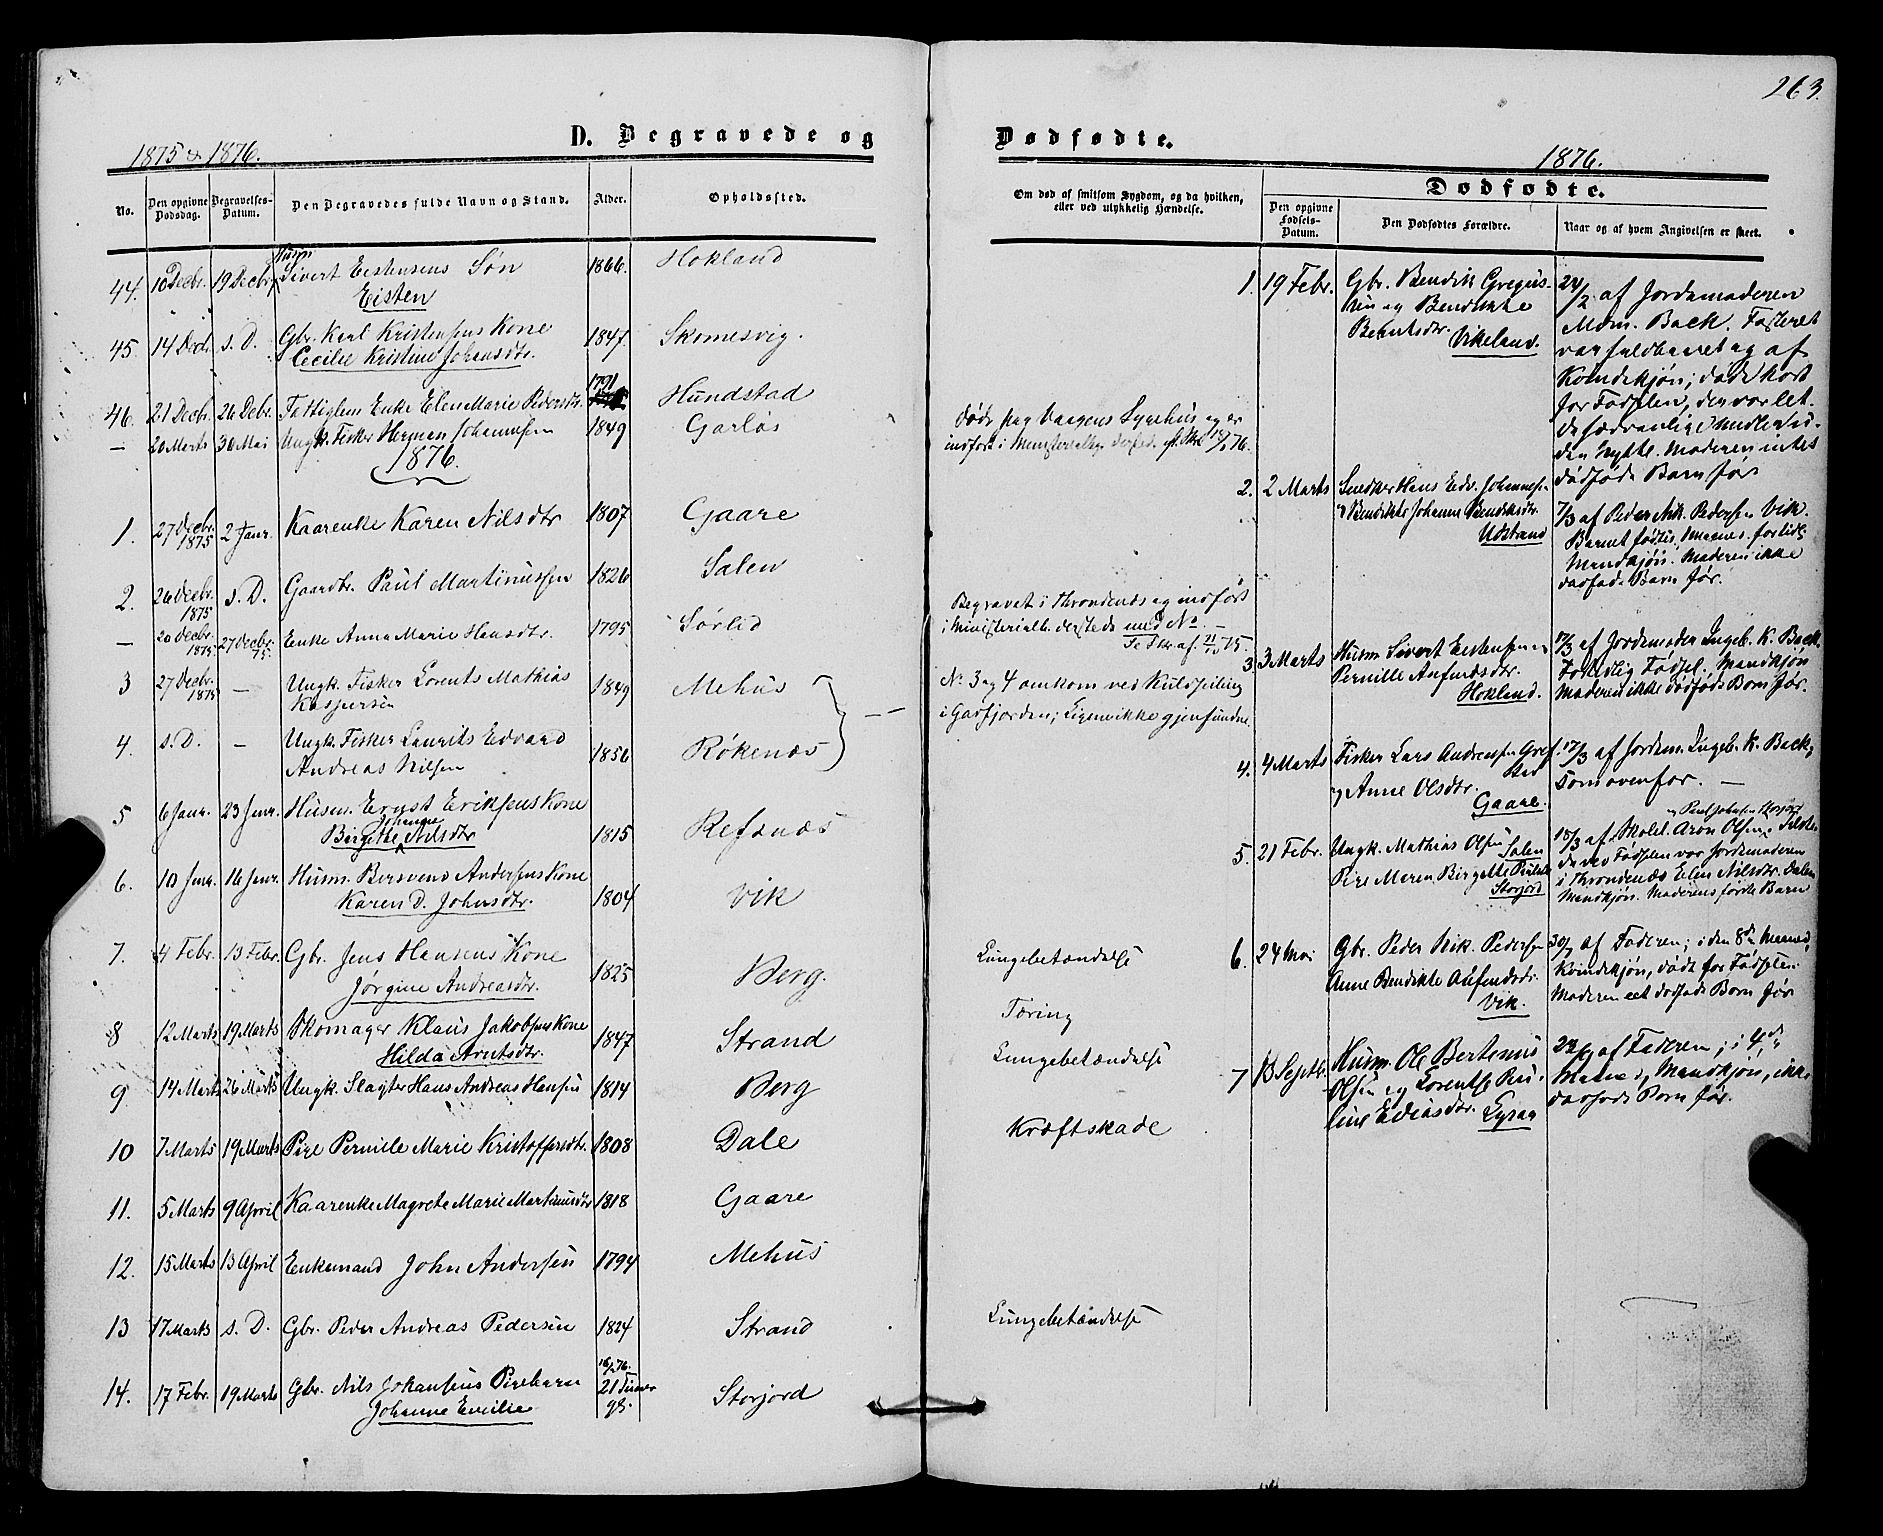 263.
D. Begravede og Dødfødte.
1875 & 1876.
1876.
No.
Den opgivne Dødsdag.
Begravelses-Datum.
Den Begravedes fulde Navn og Stand.
Alder.
Opholdssted.
Om død af smitsom Sygdom, og da hvilken, eller ved ulykkelig Hændelse.
Dødfødte.
Den opgivne Fødsels-Datum.
Den Dødfødtes Forældre.
Naar og af hvem Angivelsen er skeet.
44. 10 Decbr. 19 Decbr. Husm. Sivert Eistensens Søn 1866. Hokland
Eisten
45. 14 Decbr s. D. Gbr. Karl Kristensens Kone 1847 Skomesvig.
Cecilie Kristine Johansdtr.
46. 21 Decbr. 26 Debr. Fattiglem Enke Elen Marie Pedersdtr. 1791 Hundstad
— 20 Marts 30 Mai Ungk. Fisker Herman Johannesen 1849 Garløs
Døde paa Vaagens Sygehus og er
indført i Ministerialbog dersteds
1876.
1. 27 Decbr. 1875 2 Janr. Kaarenke Karen Nilsdtr 1807 Gaare
2. 26 Decbr. 1875 s. D. Gaardbr. Paul Martinussen 1826 Salen
— 20 Decbr. 1875 27 Decbr. 75. Enke Anna Marie Hansdtr. 1795 Sørlid
Begravet i Throndenæs og indført
i Ministerialb. dersteds med No. —
3 27 Decbr. 1875 — Ungk. Fisker Lorents Mathias 1849 Mehus
Kaspersen
No. 3 og 4 omkom ved Kuldseiling
i Gasfjorden; Ligene ikke gjenfundne.
4. s. D. — Ungk. Fisker Laurits Edvard 1856 Røkenæs
Andreas Nilsen
5 6 Janr. 23 Janr. Husm. Ernst Eriksens Kone 1815 Refsnæs
Birgithe Johanne Nilsdtr
6. 10 Janr. 16 Janr. Husm. Bersvend Andersens Kone 1804 Vik
Karen D. Johnsdtr.
7. 4 Febr. 13 Febr. Gbr. Jens Hansens Kone 1825 Berg. Lungebetændelse
Jørgine Andreasdtr.
8 12 Marts 19 Marts Skomager Klaus Jakobsens Kone 1847 Strand Tæring
Hilda Arntsdtr.
9 14 Marts 26 Marts Ungk. Slagter Hans Andreas Hansen 1814 Berg Lungebetændelse
10 7 Marts 19 Marts Pige Pernille Marie Kristoffersdtr. 1808 Dale Kræftskade
11. 5 Marts 9 April Kaarenke Magrete Marie Martinusdtr 1818 Gaare
12. 15 Marts 13 April Enkemand John Andersen 1794 Mehus
13 17 Marts s. D. Gbr. Peder Andreas Pedersen 1824 Strand Lungebetændelse
14. 17 Febr. 19 Marts Gbr. Nils Johansens Pigebarn 21 Timer gl. Storjord
Johanne Emilie
1. 19 Febr. Gbr. Bendik Gregus-
sen og Bendikke
Berntsdtr. Vikeland.
24/2 af Jordemoderen
Mdm. Back. Fosteret
var fuldbaaret og af
Kvindekjøn; døde kort
før Fødslen, der var let.
De sædvanlige Midler u-
den Nytte. Moderen intet
dødfødt Barn før
2. 2 Marts Snedker Hans Edv. Johannesen
og Bendikte Johanne Bendiksdtr.
Udstrand
7/3 af Peder Nik. Pedersen Vik.
Mandkjøn. Moderen ikke
dødfødt Barn før.
3 3 Marts Husm. Sivert Eistensen og
Pernille Anfindsdtr.
Hokland.
17/3 af Jordemoder Ingeb. K. Back.
Fortidlig Fødsel. Mandkjøn
Moderen ikke dødfødt Barn før.
4. 4 Marts Fisker Lars Andreasen
og Anne Olsdtr.
Gaare.
17/3 af Jordem. Ingeb. K. Back,
som ovenfor. —
5. 21 Febr. Ungk. Mathias Olsen Salen
Pige Maren Birgitte
Storjord
da ved Fødslen var Jordemoderen
i Throndenæs Elen Nilsdtr. Dalen
Mandkjøn. Moderens første Barn
6. 24 Mai Gbr. Peder Nik. Pedersen
Anne Bendikte Anfindsdtr.
Vik.
30/7 af Faderen; i den 8de Maaned,
Kvindekjøn, død før Fødslen.
Moderen eet dødfødt Barn før
7 13 Septb. Husm. Ole Bertinus
Olsen og Lorentse Pau-
line Ediasdtr.
af Faderen; i 4de
Maaned, Mandkjøn, ikke
dødfødt Barn før.